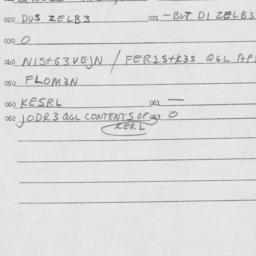 020 DUS ZELB3 021 - BUT DI ZELB3
030 0
040 NIST63VEJN / FER1S+K3S QGL API
050 FLOM3N
060 KESRL 061 —
062 JODR3 QGL CONTENTS OF 063 0
KERL